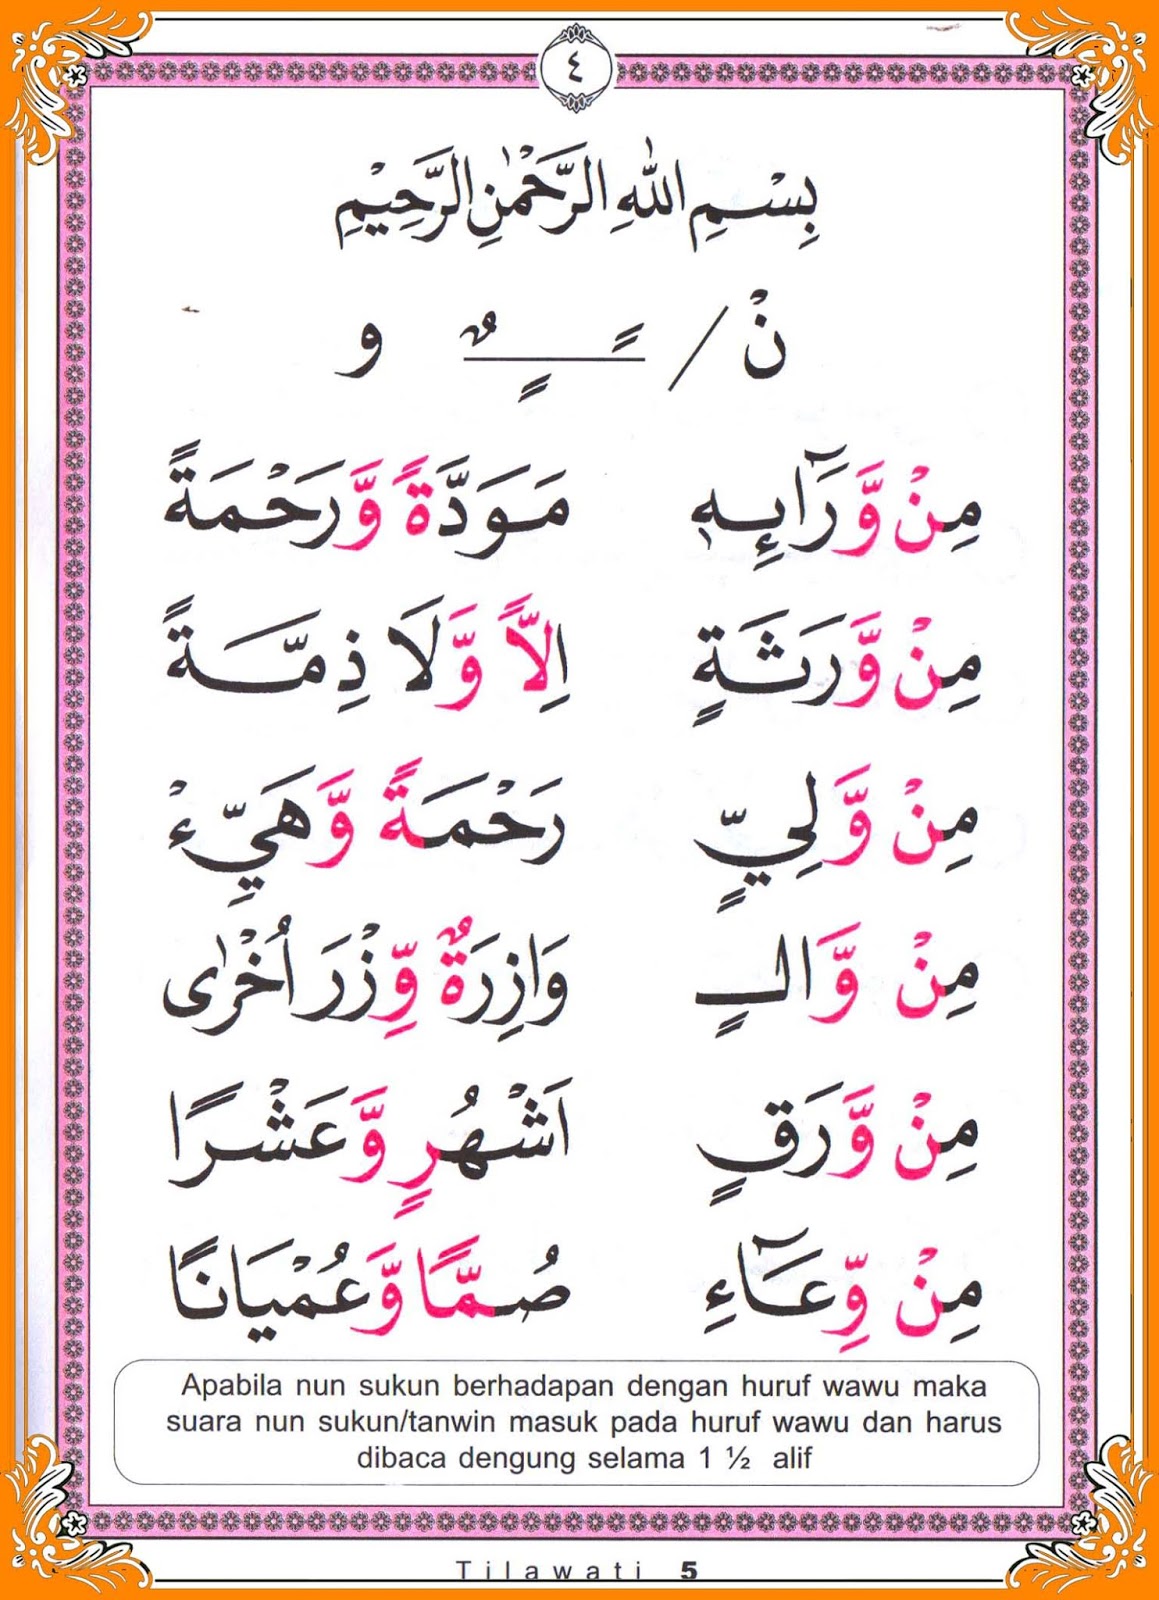 ٤
بِسْمِ اللهِ الرَّحْمٰنِ الرَّحِيْمِ
نْ / ـًـٍـٌ و
مِنْ وَّرَآئِهٖ مَوَدَّةً وَّرَحْمَةً
مِنْ وَّرَثَةٍ اِلاًّ وَّلَا ذِمَّةً
مِنْ وَّلِيٍّ رَحْمَةً وَّهَيِّءْ
مِنْ وَّالٍ وَازِرَةٌ وِّزْرَ اُخْرٰى
مِنْ وَّرَقٍ اَشْهُرٍ وَّعَشْرًا
مِنْ وِّعَآءِ صُمًّا وَّعُمْيَانًا
Apabila nun sukun berhadapan dengan huruf wawu maka
suara nun sukun/tanwin masuk pada huruf wawu dan harus
dibaca dengung selama 1 ½ alif
Tilawati 5